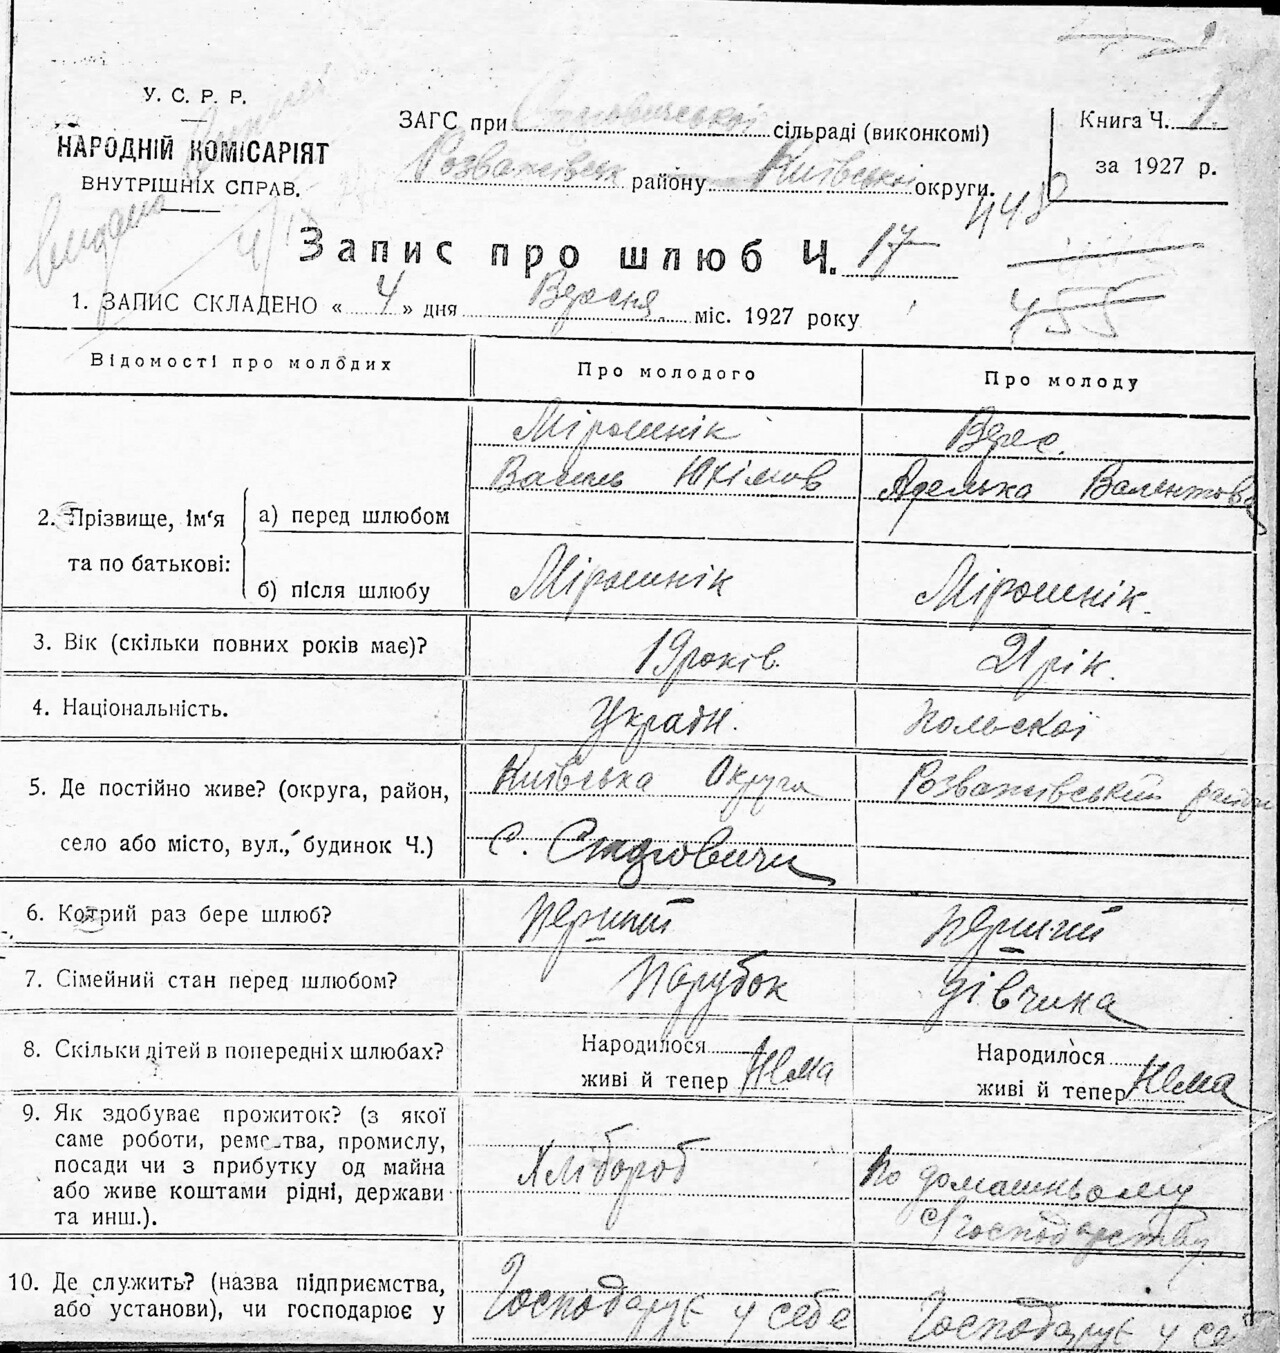 У. С. Р. Р.
НАРОДНІЙ КОМІСАРІЯТ
ВНУТРІШНІХ СПРАВ.
видано
ЗАГС при сільраді (виконкомі)
Розважівськ району Київської округи.
Книга Ч. 1.
за 1927 р.
Запис про шлюб Ч. 17
455
1. ЗАПИС СКЛАДЕНО « 4 » дня Вересня міс. 1927 року
Відомості про молодих Про молодого Про молоду
Мірошнік Верес.
Василь Юхімов Аделька Валентова
2. Прізвище, ім‘я та по батькові: а) перед шлюбом
б) після шлюбу Мірошнік Мірошнік.
3. Вік (скільки повних років має)? 19 років. 21 рік.
4. Національність. Україн. Польскої
5. Де постійно живе? (округа, район, Київська Округа Розважівський район
село або місто, вул., будинок Ч.) с. Стадговичи
6. Котрий раз бере шлюб? Перший Перший
7. Сімейний стан перед шлюбом? Парубок Дівчина
8. Скільки дітей в попередніх шлюбах? Народилося Народилося
живі й тепер Нема живі й тепер Нема
9. Як здобуває прожиток? (з якої
саме роботи, ремества, промислу,
посади чи з прибутку од майна Хлібороб По домашньому
або живе коштами рідні, держави господарству
та инш.).
10. Де служить? (назва підприємства,
або установи), чи господарює у Господарує у себе Господарує у себе